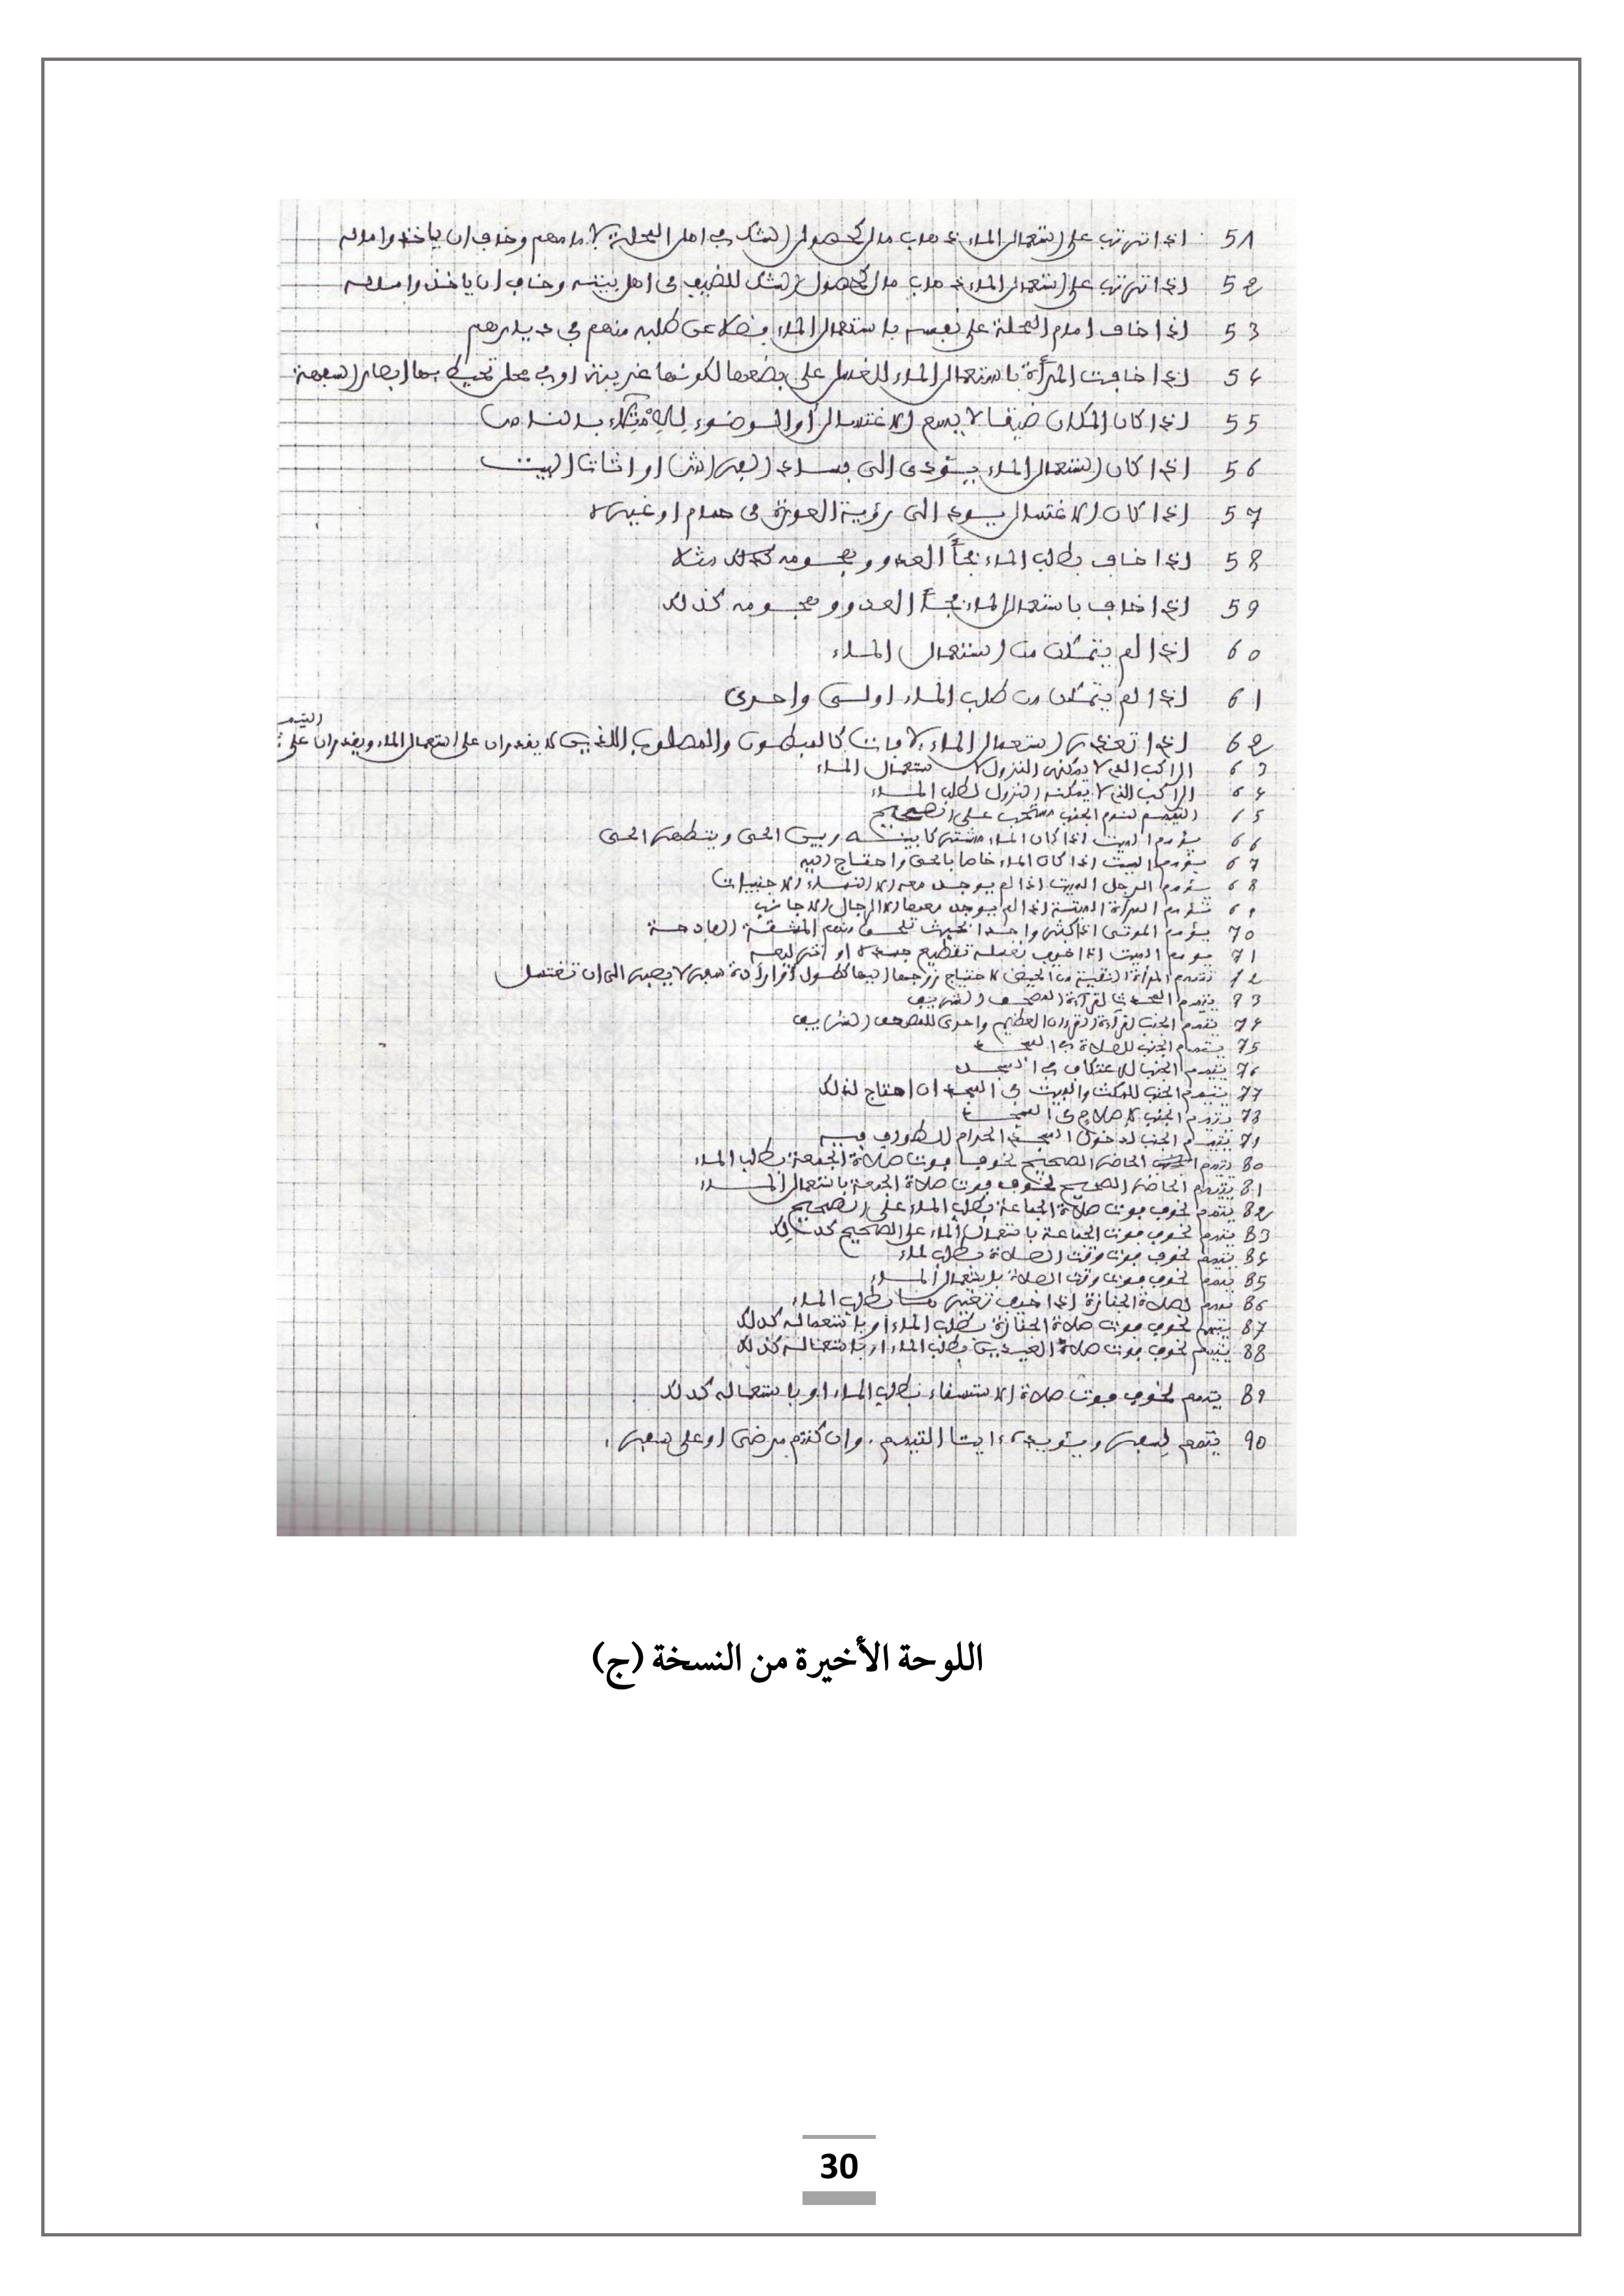 51 اذا ترتب على استعمال الماء ذهاب مال لحصول الشك في اهل المحلة لامامهم وخاف ان ياخذوا ماله
52 اذا ترتب على استعمال الماء ذهاب مال لحصول الشك للضيف في اهل بيته وخاف ان ياخذوا ماله
53 اذا خاف امام المحلة على نفسه باستعمال الماء فضلا عن طلبه منهم في ديارهم
54 اذا خافت المرأة باستعمال الماء للغسل على بضعها لكونها غريبة او في محل تحيط بها ابصار السفهة
55 اذا كان المكان ضيقا لا يسع الاغتسال أو الوضوء
56 اذا كان استعمال الماء يؤدي الى فساد الفراش او اثاث البيت
57 اذا كان الاغتسال يودي الى رؤية العورة في حمام او غيره
58 اذا خاف بطلب الماء فجأ العدو وهجومه كذلك مثلا
59 اذا خاف باستعمال الماء فجأ العدو وهجومه كذلك
60 اذا لم يتمكن من استعمال الماء
61 اذا لم يتمكن من طلب الماء اولى واحرى
62 اذا تعذر استعمال الماء لآفات كالمبطون والمصلوب اللذين لا يقدران على استعمال الماء ويقدران على التيمم
63 الراكب الذي لا يمكنه النزول لاستعمال الماء
64 الراكب الذي لا يمكنه النزول لطلب الماء
65 التيمم لنوم الجنب مستحب على الصحيح
66 يؤمم الميت اذا كان الماء مشتركا بينه وبين الحي ويتطهر الحي
67 يؤمم الميت اذا كان الماء خاصا بالحي واحتاج اليه
68 يؤمم الرجل الميت اذا لم يوجد معه الا النساء الاجنبيات
69 تؤمم المرأة الميتة اذا لم يوجد معها الا الرجال الاجانب
70 يؤمم الموتى اذا كثروا جدا بحيث تلحق منهم المشقة الفادحة
71 يومم الميت اذا خيف بغسله تقطيع جسده او
72 تتيمم المرأة النقية من الحيض لاحتياج زوجها اليها لطول سفر لا يصبر الى ان تغتسل
73 يتيمم المحدث لقراءة المصحف الشريف
74 يتيمم الجنب لقراءة القرءان العظيم واحرى للمصحف الشريف
75 يتيمم الجنب للصلاة في المسجد
76 يتيمم الجنب للاعتكاف في المسجد
77 يتيمم الجنب للمكث والمبيت في المسجد ان احتاج لذلك
78 يتيمم الجنب لاصلاح في المسجد
79 يتيمم الجنب لدخول المسجد الحرام للطواف فيه
80 يتيمم الحاضر الصحيح لخوف فوت صلاة الجمعة بطلب الماء
81 يتيمم الحاضر الصحيح لخوف فوت صلاة الجمعة باستعمال الماء
82 يتيمم لخوف فوت صلاة الجماعة بطلب الماء على الصحيح
83 يتيمم لخوف فوت الجماعة باستعمال الماء على الصحيح كذلك
84 يتيمم لخوف فوت وقت الصلاة بطلب لماء
85 يتيمم لخوف فوت وقت الصلاة باستعمال الماء
86 يتيمم لصلاة الجنازة اذا خيف تغيرها بطلب الماء
87 يتيمم لخوف فوت صلاة الجنازة بطلب الماء او باستعماله كذلك
88 يتيمم لخوف فوت صلاة العيدين بطلب الماء او باستعماله كذلك
89 يتيمم لخوف فوت صلاة الاستسقاء بطلب الماء او باستعماله كذلك
90 يتمم لسفر ويؤيده ءايتا التيمم . وان كنتم مرضى او على سفر .
اللوحة الأخيرة من النسخة (ج)
30